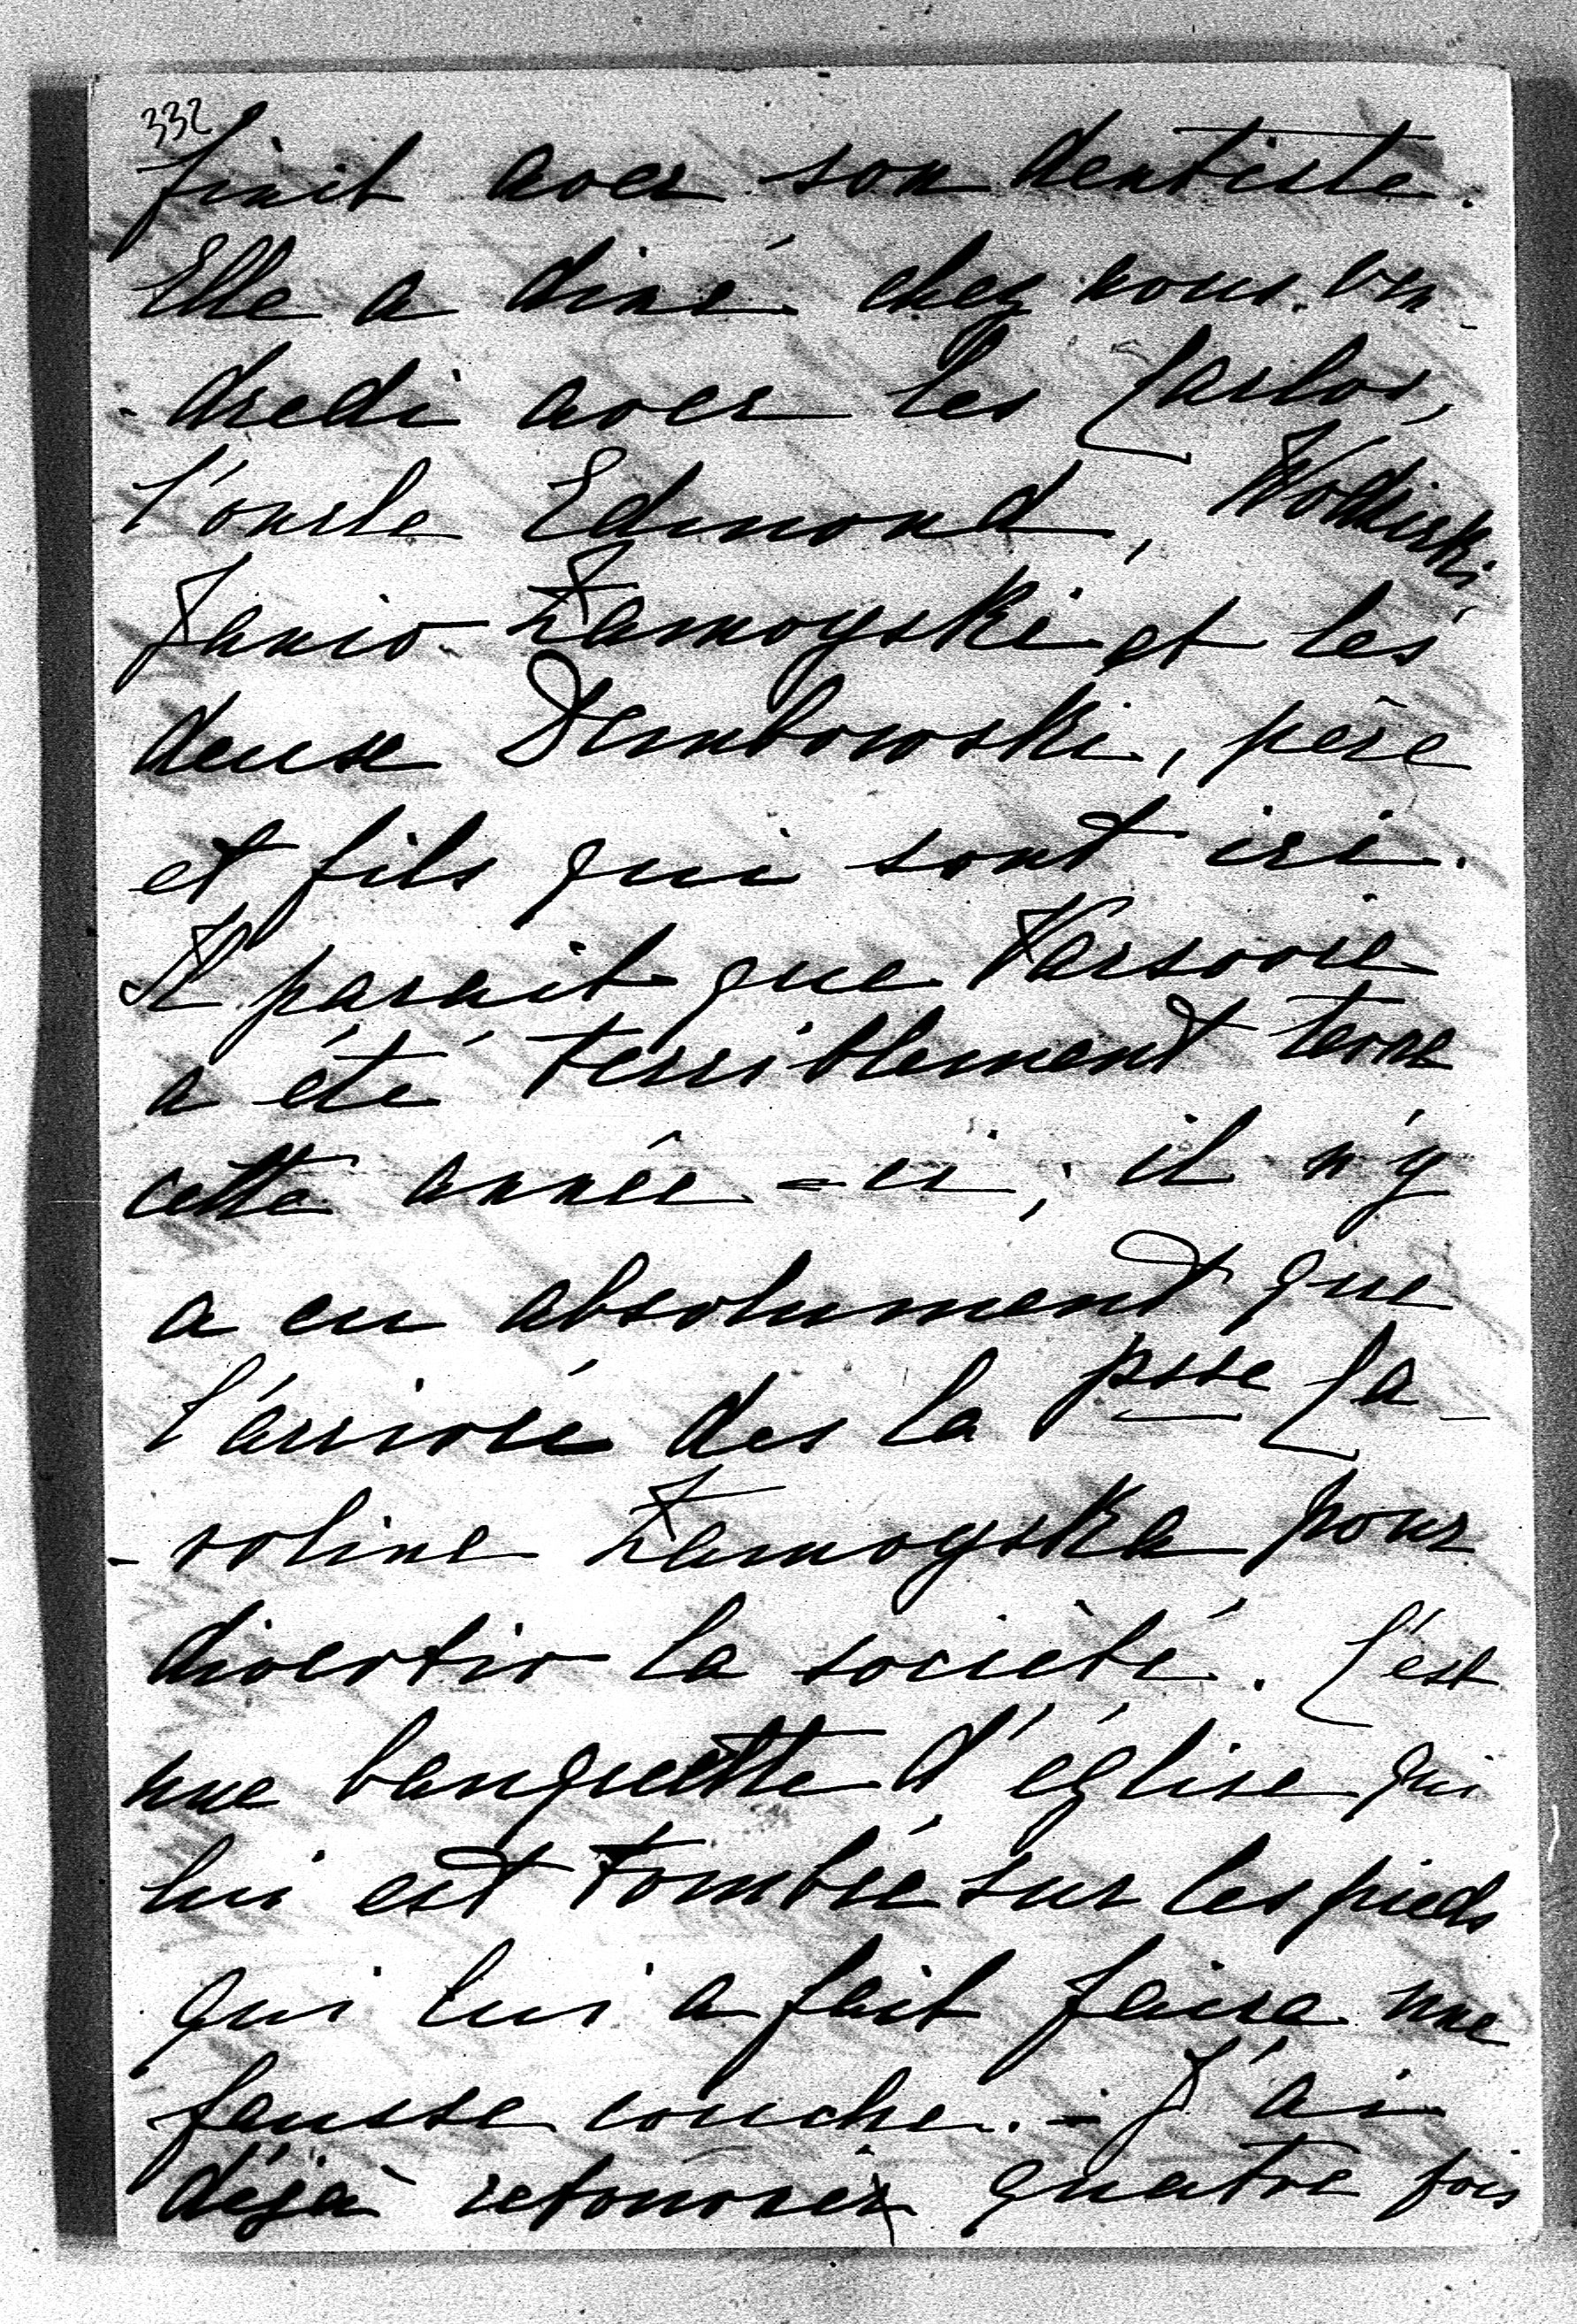 332
finit avec son dentiste.
Elle a diné chez nous ven-
-dredi avec les Carlos,
l'oncle Edmond, Wodzicki,
Janio Zamoyski et les
deux Dembowski, père
et fils qui sont ici.
Il parait que Varsovie
a été terriblement terne
cette année=ci; il n'y
a eu absolument que
l'arrivée des la psse Ca-
-roline Zamoyska pour
divertir la société. C'est
une banquette d'église qui
lui est tombée sur les pieds
qui lui a fait faire une
fausse couche. - J'ai
déjà retourné quatre fois